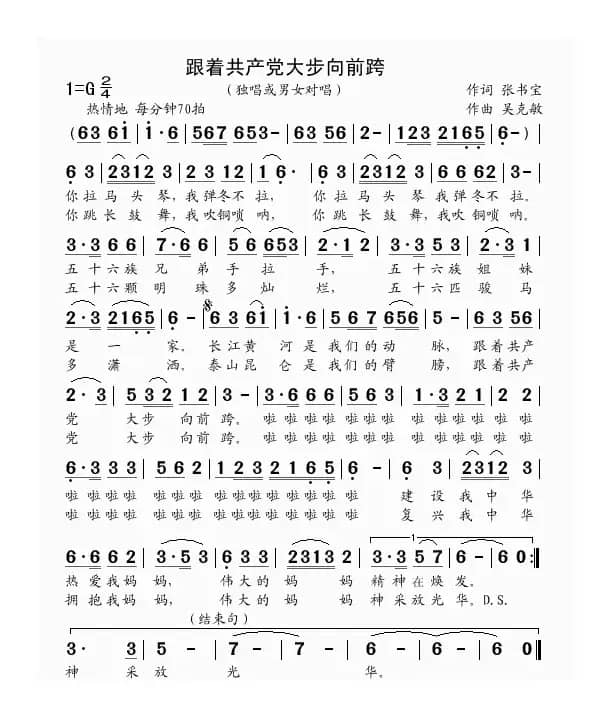 跟着共产党大步向前跨
1=G 2/4
(独唱或男女对唱)
作词 张书宝
热情地 每分钟70拍
作曲 吴克敏
(63 61 | 1·6 | 567 653- | 63 56 | 2- | 123 2165 | 6-)
6 3 | 2312 3 | 2 3 12 | 1 6· | 6 3 | 2312 3 | 6 6 62 | 3- |
你拉马头琴,我弹冬不拉, 你拉马头琴,我弹冬不拉。
你跳长鼓舞,我吹铜唢呐, 你跳长鼓舞,我吹铜唢呐。
3·3 6 6 | 7·6 6 | 5 6 653 | 2·1 2 | 3·3 5 3 | 2·3 1 |
五十六族兄弟手拉手, 五十六族姐妹
五十六颗明珠多灿烂, 五十六匹骏马
2·3 2165 | 6- | 6 3 61 | 1·6 | 5 6 7 656 | 6- | 63 56 |
是一家。长江黄河是我们的动脉,跟着共产
多潇洒,泰山昆仑是我们的臂膀,跟着共产
2·3 | 5 32 1 2 | 3- | 3·6 6 6 | 5 6 3 | 1·3 2 1 | 2 2 |
党大步向前跨。啦啦啦啦啦啦啦啦啦啦啦啦啦
党大步向前跨。啦啦啦啦啦啦啦啦啦啦啦啦啦
6·3 3 3 | 5 6 2 | 1 2 3 2 1 6 5 | 6 - | 6 3 | 2312 3 |
啦啦啦啦啦啦啦啦啦啦啦啦啦啦啦 建设我中华
啦啦啦啦啦啦啦啦啦啦啦啦啦啦啦 复兴我中华
6·6 6 2 | 3·5 3 | 6 3 3 | 2313 2 | 3·3 5 7 | 6 - | 6 0 :‖
热爱我妈妈, 伟大的妈妈精神在焕发。
拥抱我妈妈, 伟大的妈妈神采放光华。D.S.
(结束句)
3· 3 | 5 - | 7 - | 7 - | 6 - | 6 - | 6 - | 6 0 ‖
神采放光华。